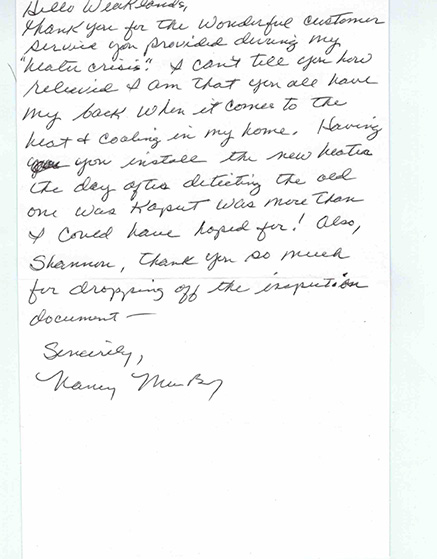 Hello Weaklands,
Thank you for the wonderful customer
service you provided during my
"heater crisis". I can't tell you how
relieved I am that you all have
my back when it comes to the
heat & cooling in my home. Having
you install the new heater
the day after detecting the old
one was Kaput was more than
I could have hoped for! Also,
Shannon, thank you so much
for dropping off the inspection
document —
Sincerely,
Nancy